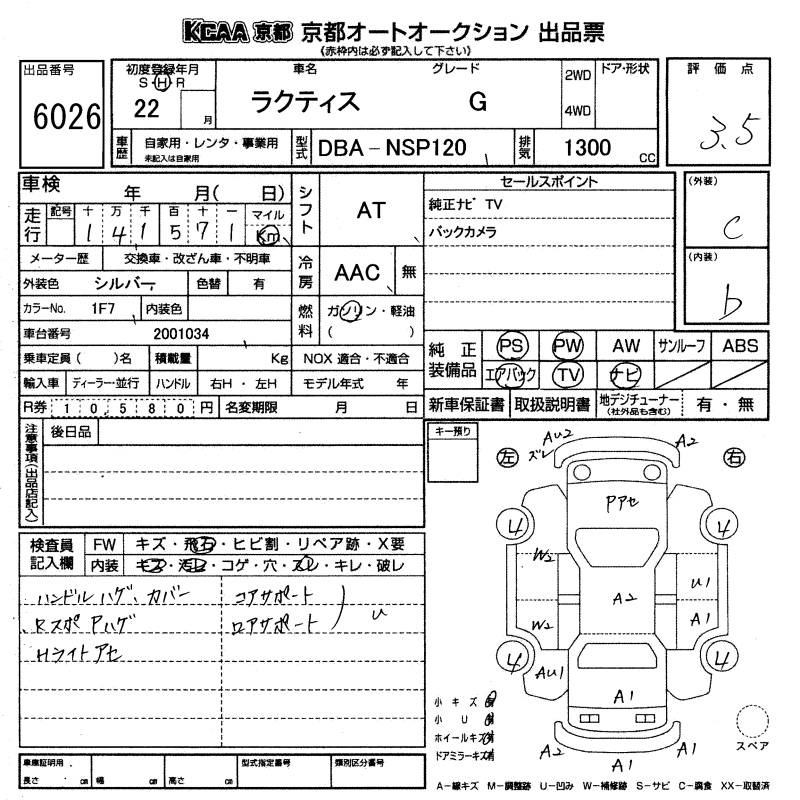 KCAA 京都 京都オートオークション 出品票
《赤枠内は必ず記入して下さい》
出品番号
6026
初度登録年月
S・H・R
22 月
車名
ラクティス
グレード
G
2WD
4WD
ドア・形状
評価点
3.5
車歴
自家用・レンタ・事業用
未記入は自家用
型式
DBA-NSP120
排気
1300 CC
車検 年 月( 日)
走行
記号 十 万 千 百 十 一 マイル
1 4 1 5 7 1 Km
メーター歴 交換車・改ざん車・不明車
外装色 シルバー 色替 有
カラーNo. 1F7 内装色
車台番号 2001034
乗車定員( )名 積載量 Kg
輸入車 ディーラー・並行 ハンドル 右H・左H
R券 10,580円 名変期限 月 日
シフト AT
冷房 AAC 無
燃料 ガソリン・軽油
( )
NOX 適合・不適合
モデル年式 年
セールスポイント
純正ナビ TV
バックカメラ
(外装)
c
(内装)
b
純正装備品
PS PW AW サンルーフ ABS
エアバック TV ナビ
新車保証書 取扱説明書 地デジチューナー(社外品も含む) 有・無
注意事項(出品店記入)
後日品
キー預り
検査員記入欄
FW キズ・飛石・ヒビ割・リペア跡・X要
内装 キズ・汚レ・コゲ・穴・スレ・キレ・破レ
ハンドルハゲ、カバー
RスポPハゲ
Hライトアセ
コアサポート
ロアサポート
U
左 右
AU2
ズレ
A2
Pアセ
4 4
W2 U1
A2
W2 A1
4 4
AU1
A1
A2 A1 A2
小キズ 有
小U 有
ホイールキズ 有
ドアミラーキズ 有
スペア
車庫証明用
長さ cm 幅 cm 高さ cm
型式指定番号
類別区分番号
A-線キズ M-調整跡 U-凹み W-補修跡 S-サビ C-腐食 XX-取替済